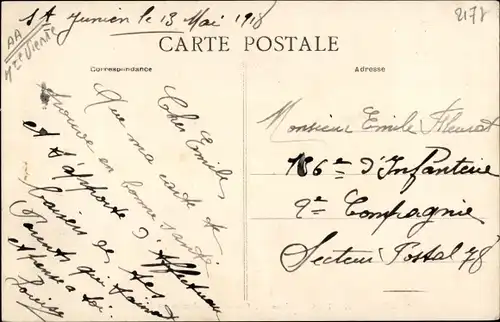 St Junien le 13 Mai 1918
2178
AA
Hte Vienne
CARTE POSTALE
Correspondance
Adresse
Cher Emile,
Que ma carte te
trouve en bonne santé
et t'apporte d'affectueux
baisers de tes
Parents, qui t'aiment
et pense a toi.
Louise
Monsieur Emile
186e d'Infanterie
9e Compagnie
Secteur Postal 78